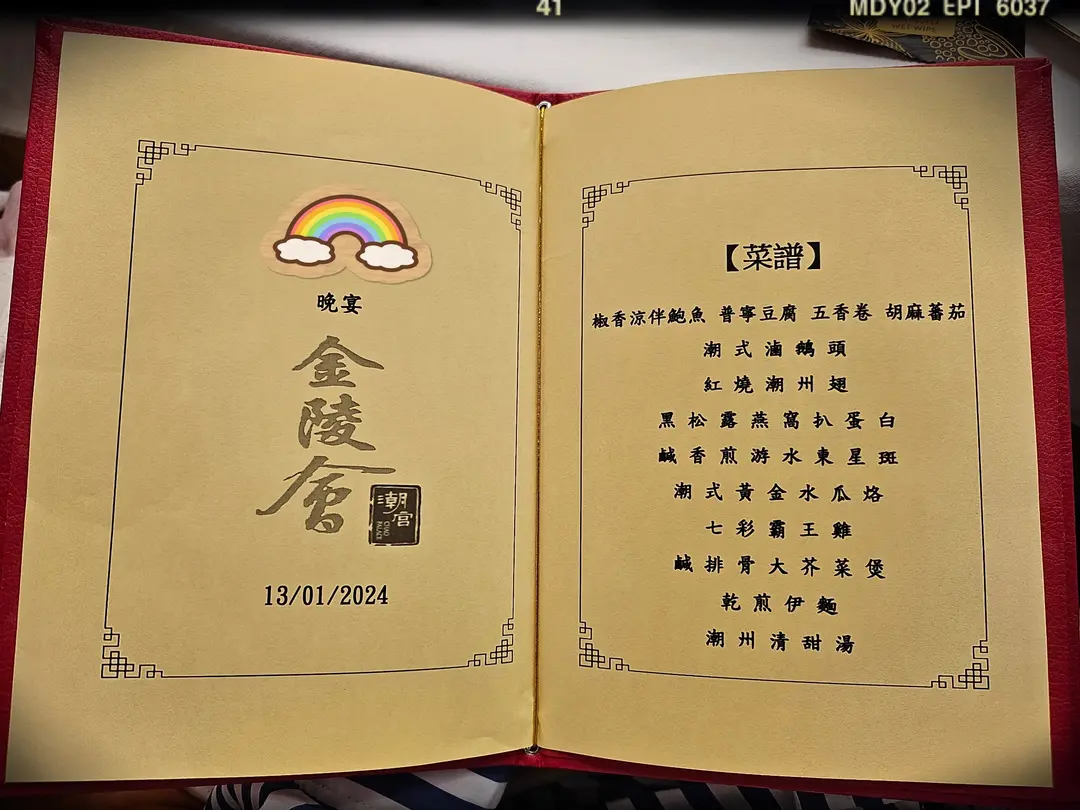 41
MDY02 EPT 6037
WET WIPE
晚宴
金陵會
潮宮
13/01/2024
【菜譜】
椒香涼伴鮑魚 普寧豆腐 五香卷 胡麻蕃茄
潮式滷鵝頭
紅燒潮州翅
黑松露燕窩扒蛋白
鹹香煎游水東星斑
潮式黃金水瓜烙
七彩霸王雞
鹹排骨大芥菜煲
乾煎伊麵
潮州清甜湯